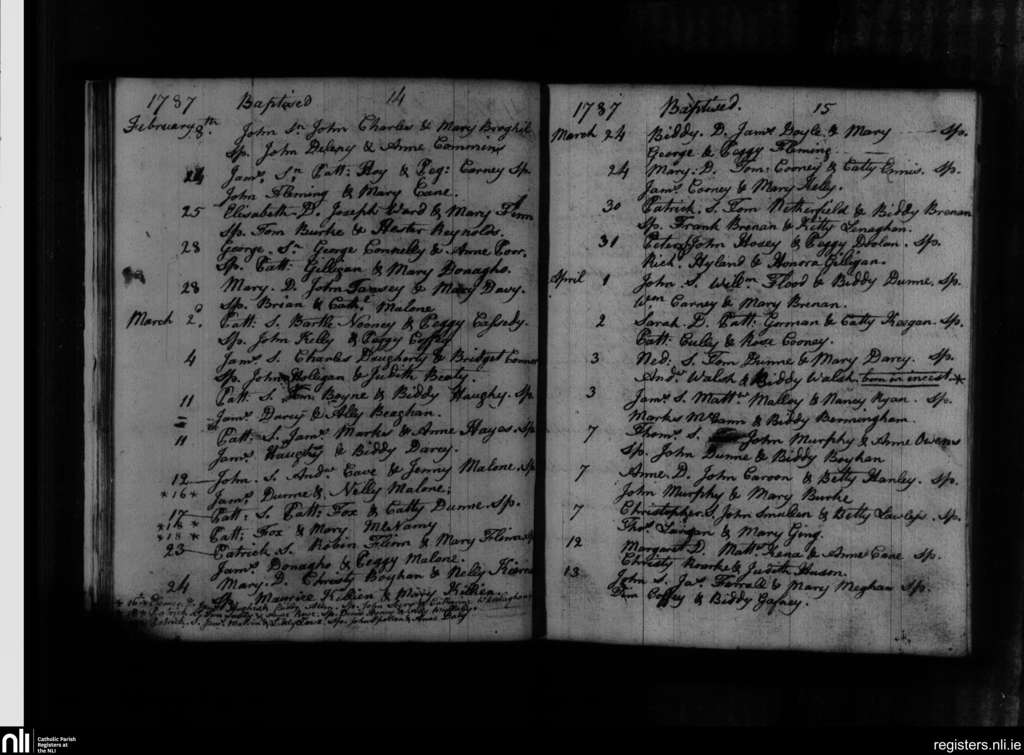 1787 Baptised 14
February 8th. John Sn John Charles & Mary
Sp. John Delany & Anne Commens
24 Jams. Sn Patt: Hoy & Peg: Carney Sp.
John Fleming & Mary Cane.
25 Elisabeth D. Joseph Ward & Mary Finn
Sp. Tom Burke & Hester Reynolds.
28 George. Sn George Connelly & Anne Corr.
Sp. Patt: Gilligan & Mary Donagho.
28 Mary. D. John Tansey & Mary Davy.
Sp. Brian & Cathe Malone
March 2d. Patt: S. Bartle Nooney & Peggy Cassedy.
Sp. John Kelly & Peggy Coffey
4 Jams. S. Charles Daugherty & Bridget Connor
Sp. John & Judith Beaty.
11 Patt. S. Tom: Boyne & Biddy Haughy. Sp.
Jams. Darcy & Ally Beaghan.
11 Patt. S. Jams. Marks & Anne Hayes. Sp
Jams. Haughy & Biddy Darcy.
12 John. S. Andw. Cave & Jenny Malone. Sp
*16* Jams. Dunne & Nelly Malone.
17 Patt: S. Patt: Fox & Catty Dunne. Sp.
*16* Patt: Fox & Mary McNamy
*18*
23 Patrick S. Robin Flinn & Mary Flinn. Sp
Jams. Donagho & Peggy Malone.
24 Mary. D. Christy Boyhan & Nelly
Sp. Maurice Killien & Mary Killien.
*16th
Patrick. S. Jams. & Sp. John & Anne Daly
1787 Baptised. 15
March 24 Biddy. D. Jams. Doyle & Mary — Sp.
George & Peggy Fleming.
24 Mary. D. Tom: Cooney & Catty Ennis. Sp.
Jams. Cooney & Mary Kelly.
30 Patrick. S. Tom Netherfield & Biddy Brenan
Sp. Frank Brenan & Kitty Lenaghan.
31 Peter S John Hosey & Peggy Doolan. Sp.
Rich. Hyland & Honora Gilligan.
April 1 John. S. Willm Flood & Biddy Dunne. Sp.
Wm Carney & Mary Brenan.
2 Sarah. D. Patt: Gorman & Catty Keegan. Sp.
Patt: Culey & Rose Cooney.
3 Ned. S. Tom Dunne & Mary Darcy. Sp.
Andw. Walsh & Biddy Walsh. born in incest *
3 Jams. S. Mattw Malloy & Nancy Ryan. Sp.
Marks McCann & Biddy Bermingham.
7 Thoms. S. John Murphy & Anne Owens
Sp. John Dunne & Biddy Boyhan
7 Anne. D. John Caroon & Betty Hanley. Sp.
John Murphy & Mary Burke
7 Christopher. S. John Smullen & Betty Lawless. Sp.
Thos. & Mary Ging.
12 Margaret D. Mattw. Kena & Anne Cane Sp.
Christy Rourke & Judith
13 John S. Jas. Farrall & Mary Meghan Sp.
Tom Coffey & Biddy Gafney.
nli Catholic Parish
Registers at
the NLI
registers.nli.ie